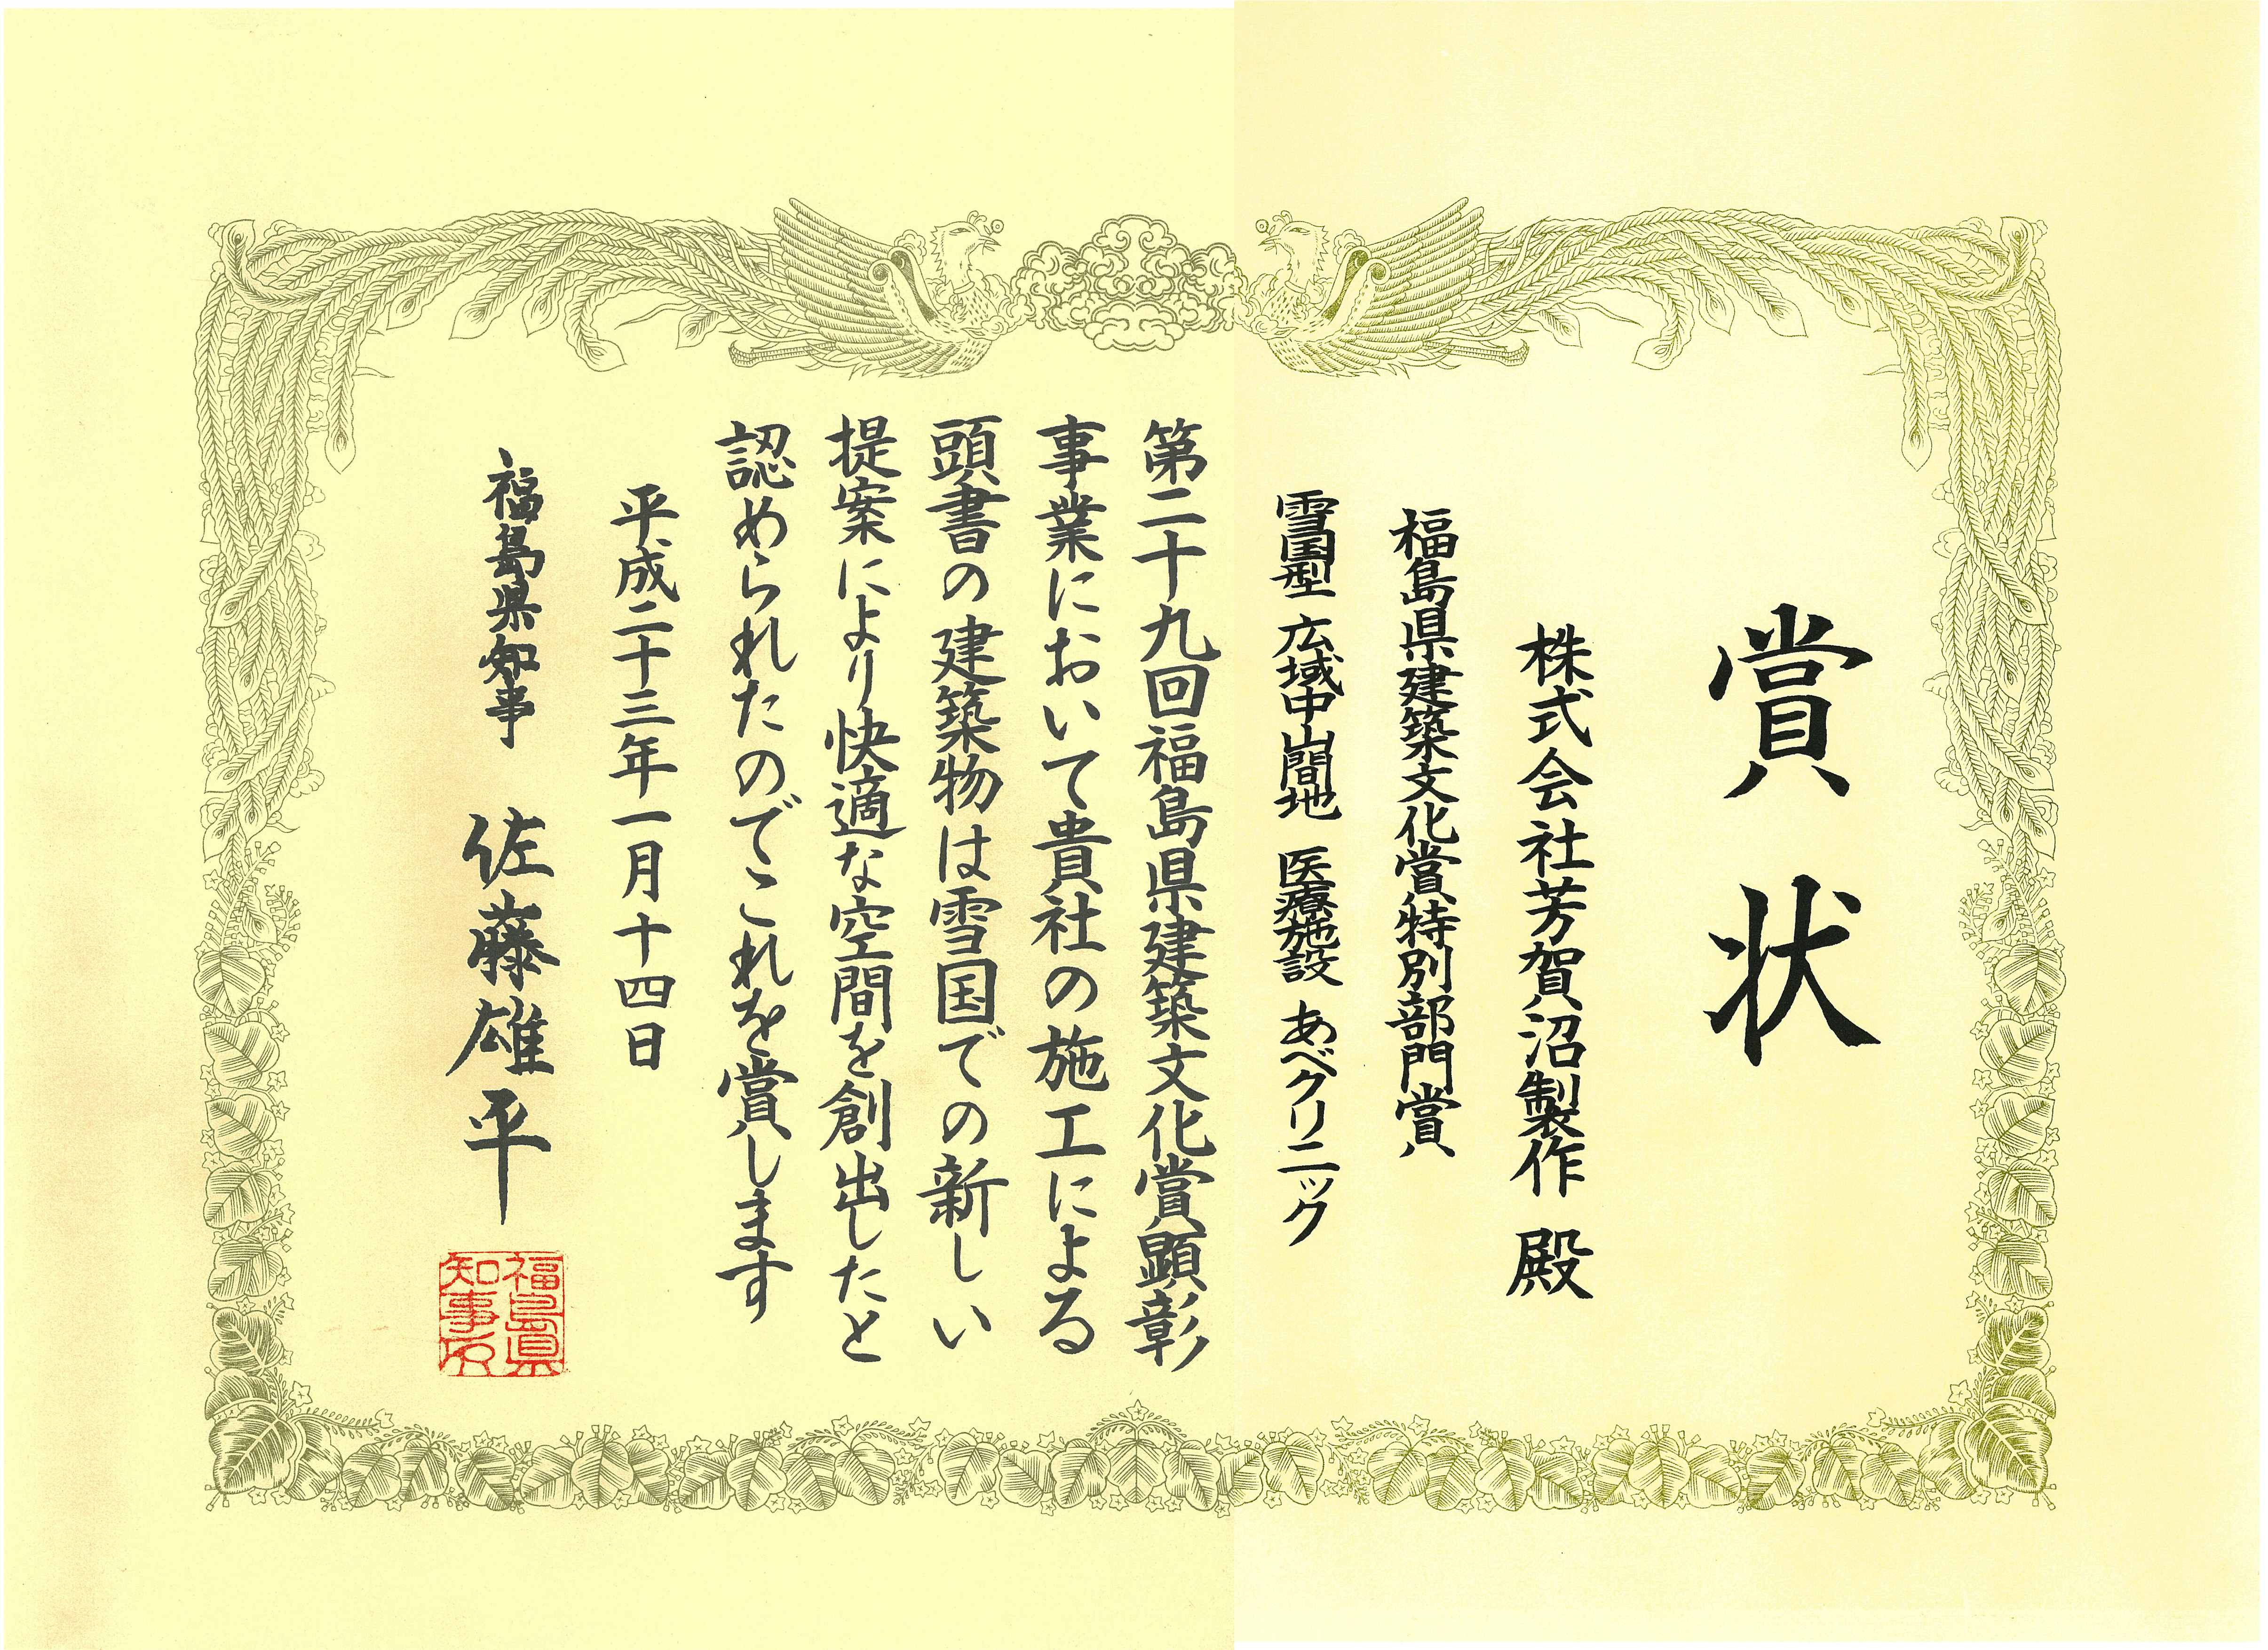 賞状
株式会社芳賀沼製作 殿
福島県建築文化賞特別部門賞
雪国型 広域中山間地 医療施設 あべクリニック
第二十九回福島県建築文化賞顕彰
事業において貴社の施工による
頭書の建築物は雪国での新しい
提案により快適な空間を創出したと
認められたのでこれを賞します
平成二十三年一月十四日
福島県知事 佐藤雄平
福島県
知事印